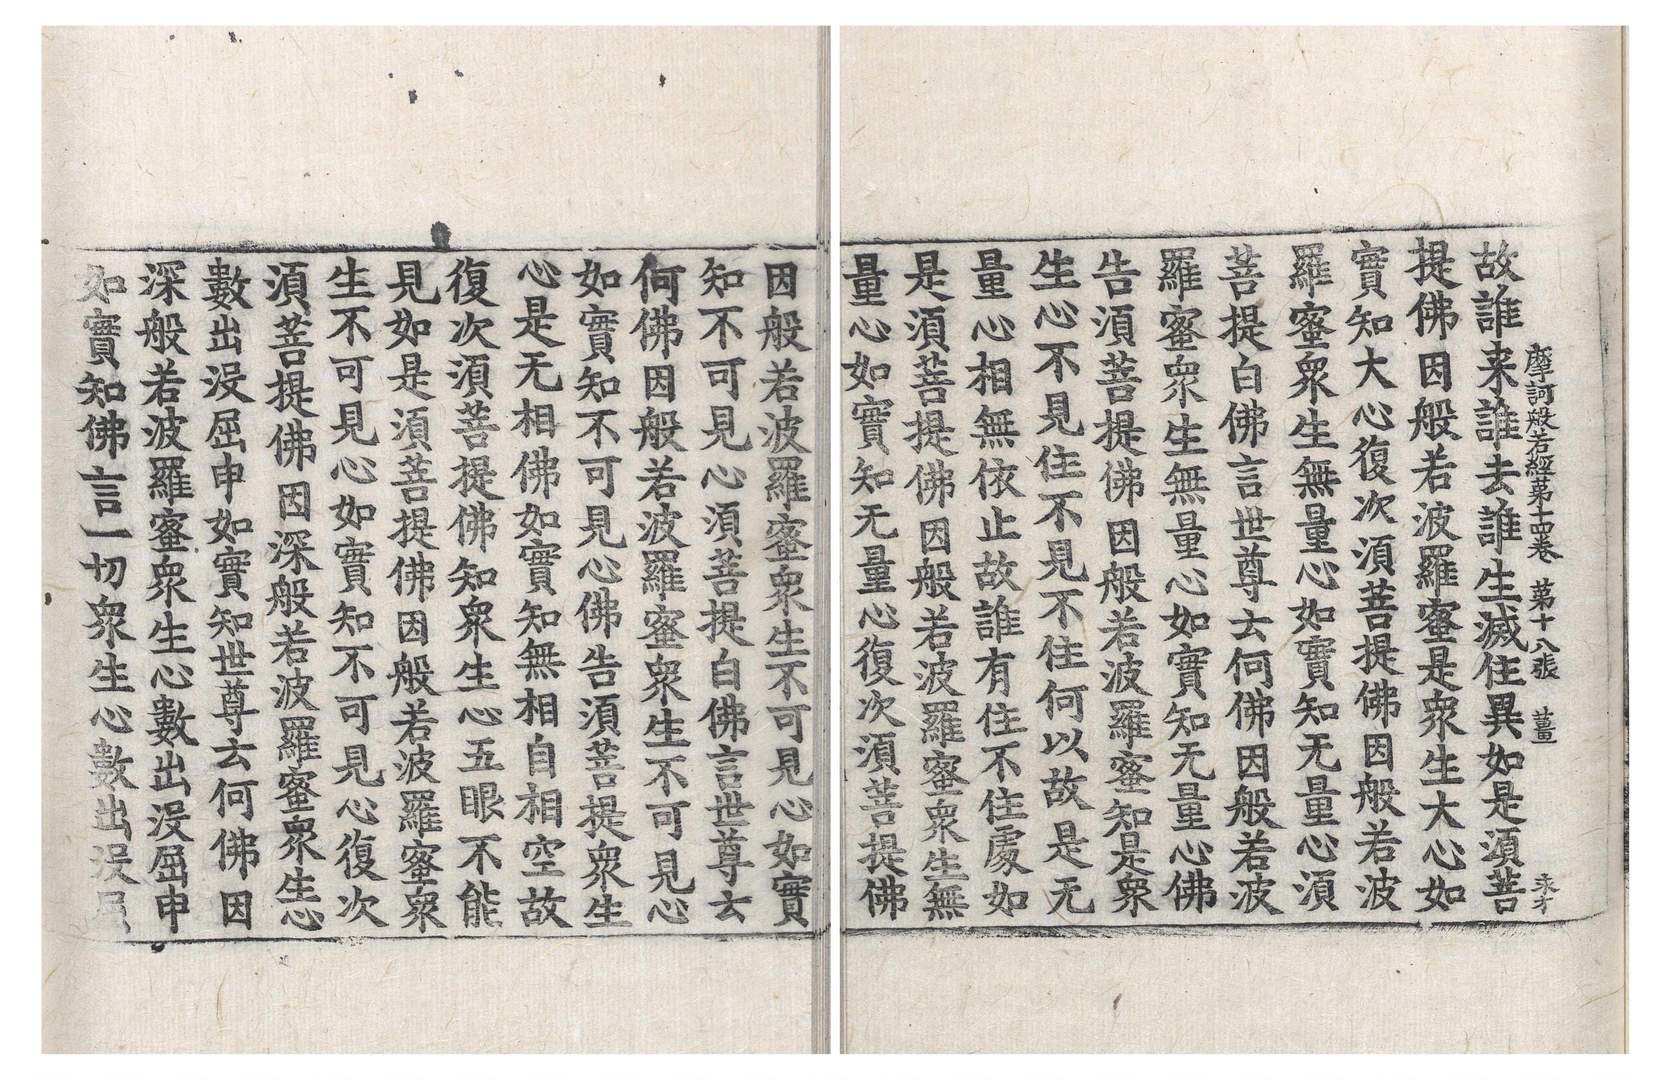 摩訶般若經第十四卷　第十八張　薑　永才
故誰来誰去誰生滅住異如是湏菩
提佛因般若波羅蜜是衆生大心如
實知大心復次湏菩提佛因般若波
羅蜜衆生無量心如實知无量心湏
菩提白佛言世尊云何佛因般若波
羅蜜衆生無量心如實知无量心佛
告湏菩提佛因般若波羅蜜知是衆
生心不見住不見不住何以故是无
量心相無依止故誰有住不住處如
是湏菩提佛因般若波羅蜜衆生無
量心如實知无量心復次湏菩提佛
因般若波羅蜜衆生不可見心如實
知不可見心湏菩提白佛言世尊云
何佛因般若波羅蜜衆生不可見心
如實知不可見心佛告湏菩提衆生
心是无相佛如實知無相自相空故
復次湏菩提佛知衆生心五眼不能
見如是湏菩提佛因般若波羅蜜衆
生不可見心如實知不可見心復次
湏菩提佛因深般若波羅蜜衆生心
數出没屈申如實知世尊云何佛因
深般若波羅蜜衆生心數出没屈申
如實知佛言一切衆生心數出没屈